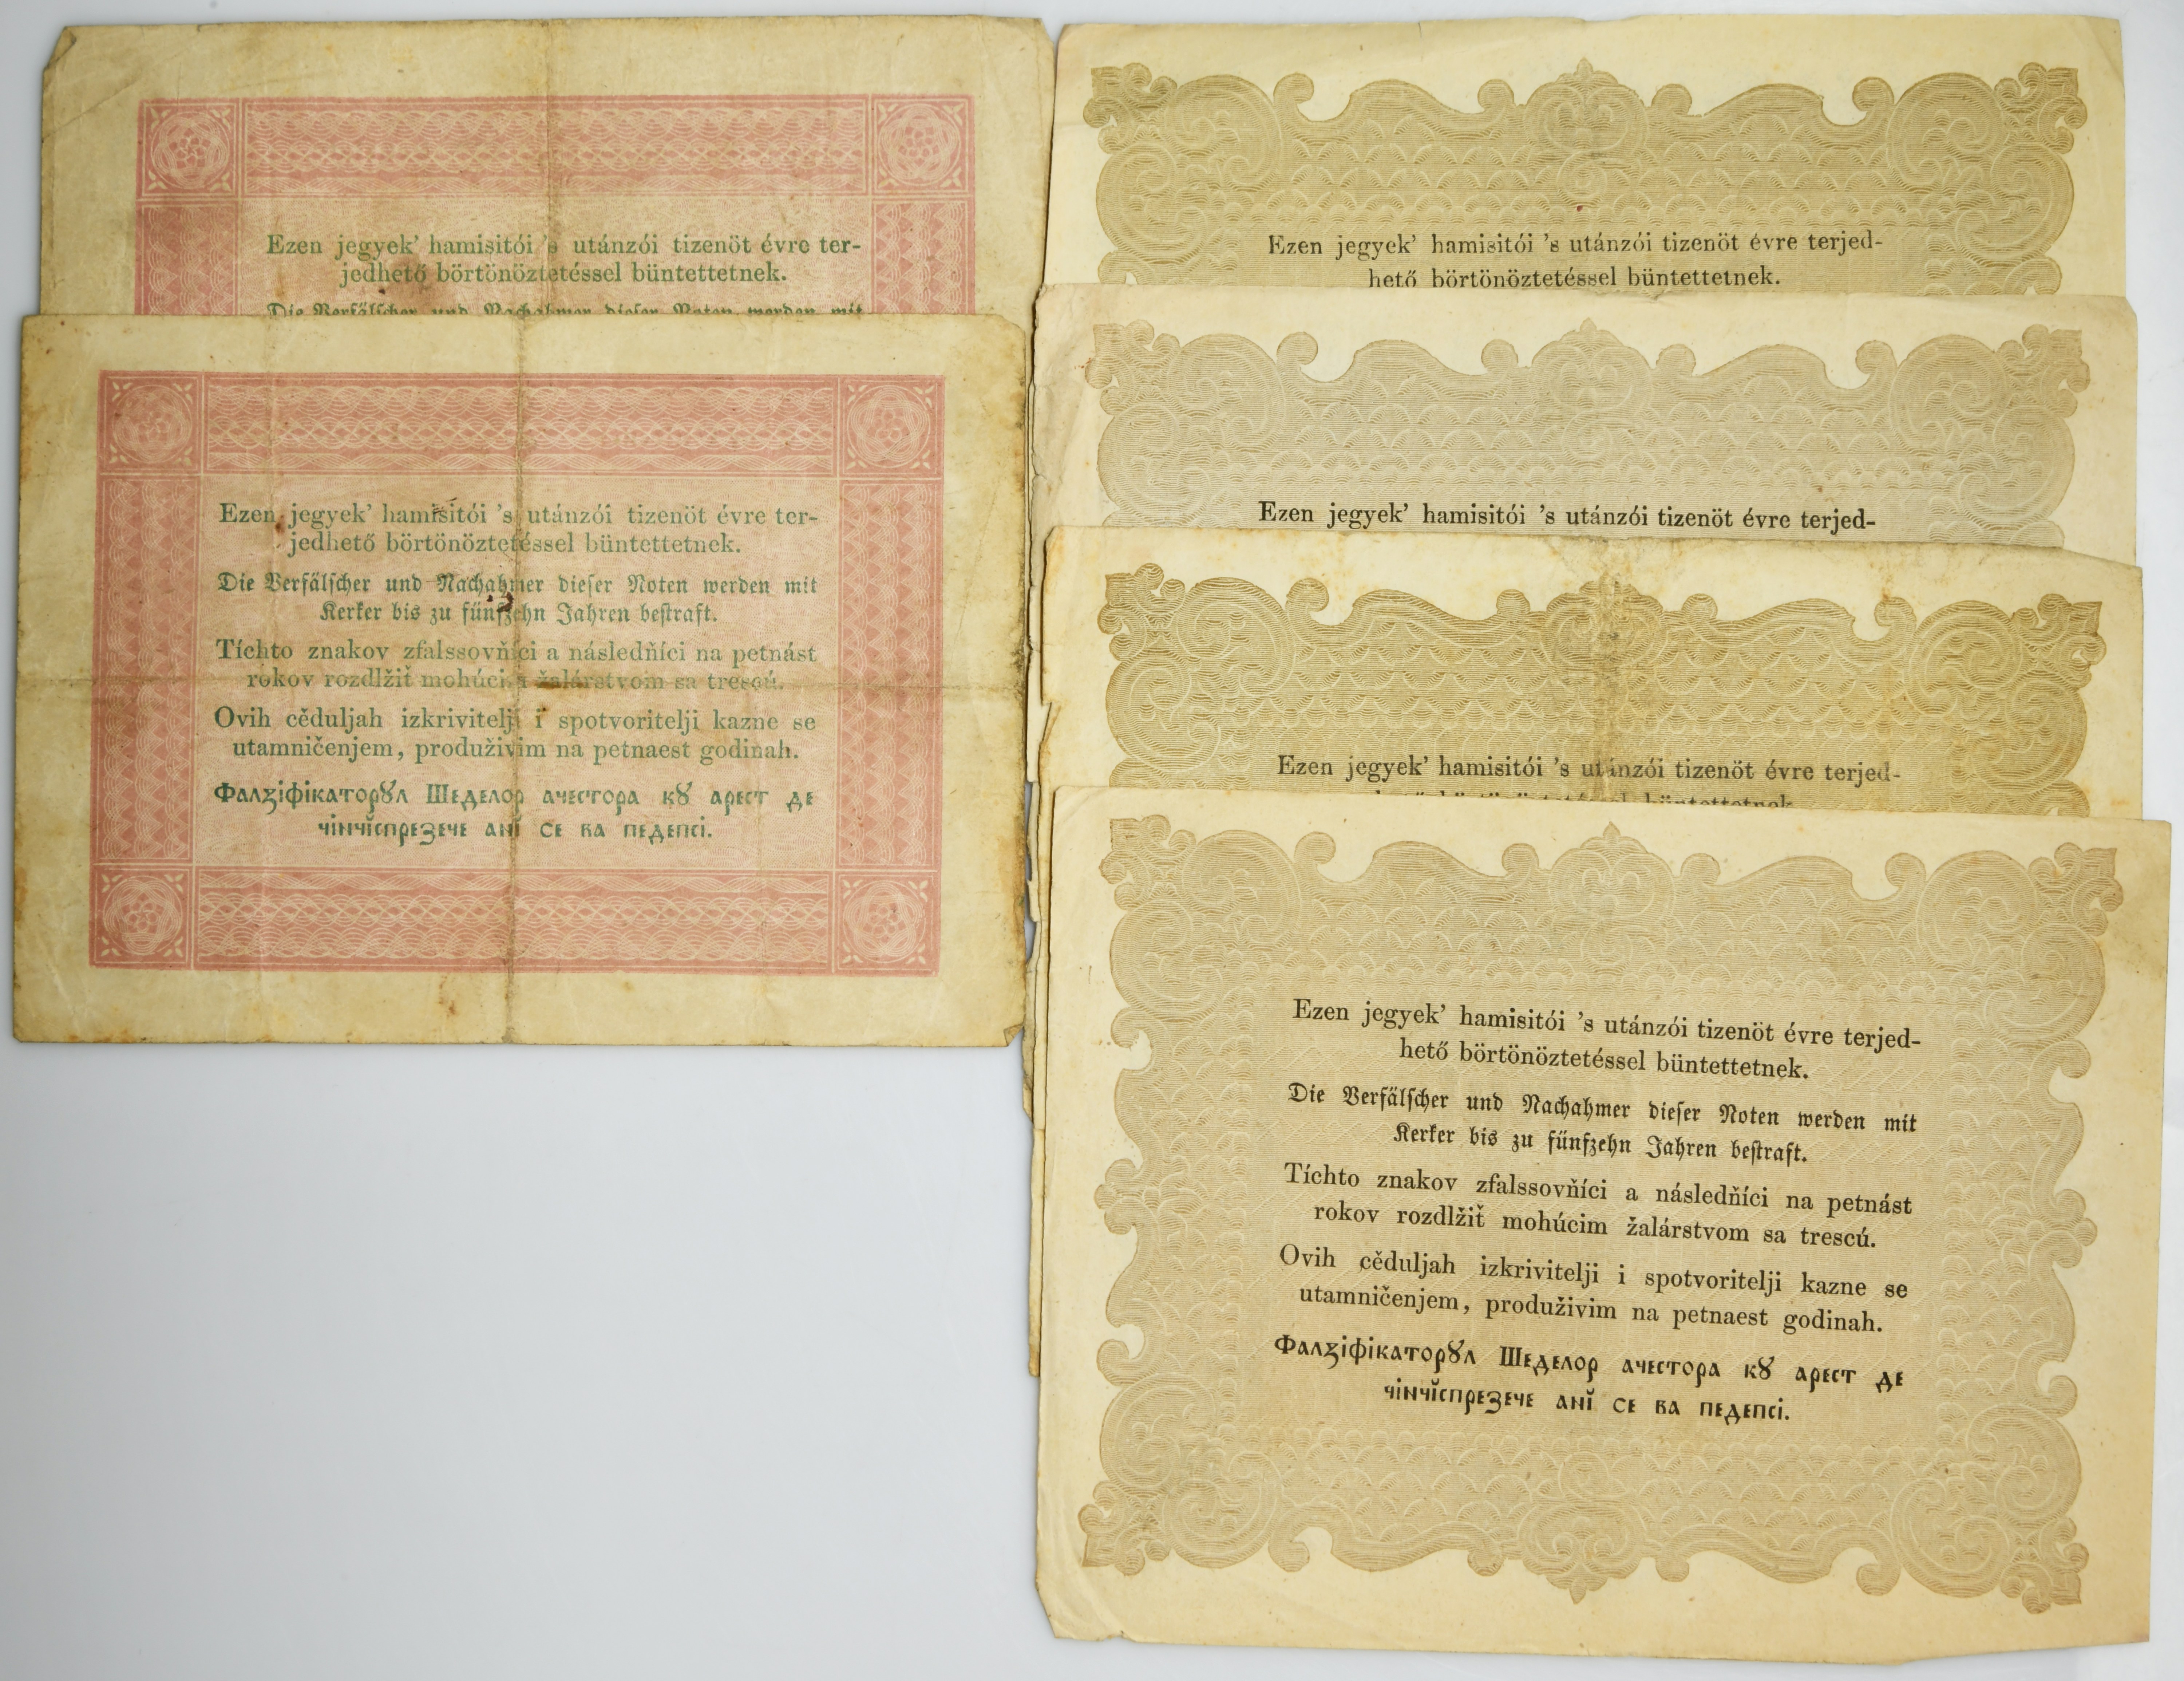 Ezen jegyek’ hamisitói ’s utánzói tizenöt évre ter-
jedhető börtönöztetéssel büntettetnek.
Die Verfälscher und Nachahmer dieser Noten werden mit
Ezen jegyek’ hamisitói ’s utánzói tizenöt évre ter-
jedhető börtönöztetéssel büntettetnek.
Die Verfälscher und Nachahmer dieser Noten werden mit
Kerker bis zu fünfzehn Jahren bestraft.
Tíchto znakov zfalssovňíci a následňíci na petnást
rokov rozdlžiť mohúcim žalárstvom sa trescú.
Ovih cěduljah izkrivitelji i spotvoritelji kazne se
utamničenjem, produživim na petnaest godinah.
Фалꙁіфікаторꙋл Шеделор ачестора кꙋ арест де
чінчĭспрезече анĭ се ва педепсі.
Ezen jegyek’ hamisitói ’s utánzói tizenöt évre terjed-
hető börtönöztetéssel büntettetnek.
Ezen jegyek’ hamisitói ’s utánzói tizenöt évre terjed-
Ezen jegyek’ hamisitói ’s utánzói tizenöt évre terjed-
hető börtönöztetéssel büntettetnek.
Ezen jegyek’ hamisitói ’s utánzói tizenöt évre terjed-
hető börtönöztetéssel büntettetnek.
Die Verfälscher und Nachahmer dieser Noten werden mit
Kerker bis zu fünfzehn Jahren bestraft.
Tíchto znakov zfalssovňíci a následňíci na petnást
rokov rozdlžiť mohúcim žalárstvom sa trescú.
Ovih cěduljah izkrivitelji i spotvoritelji kazne se
utamničenjem, produživim na petnaest godinah.
Фалꙁіфікаторꙋл Шеделор ачестора кꙋ арест де
чінчĭспрезече анĭ се ва педепсі.